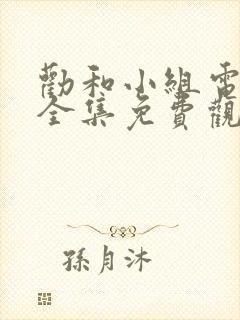 勸和小組電
全集免費觀
孫月沐